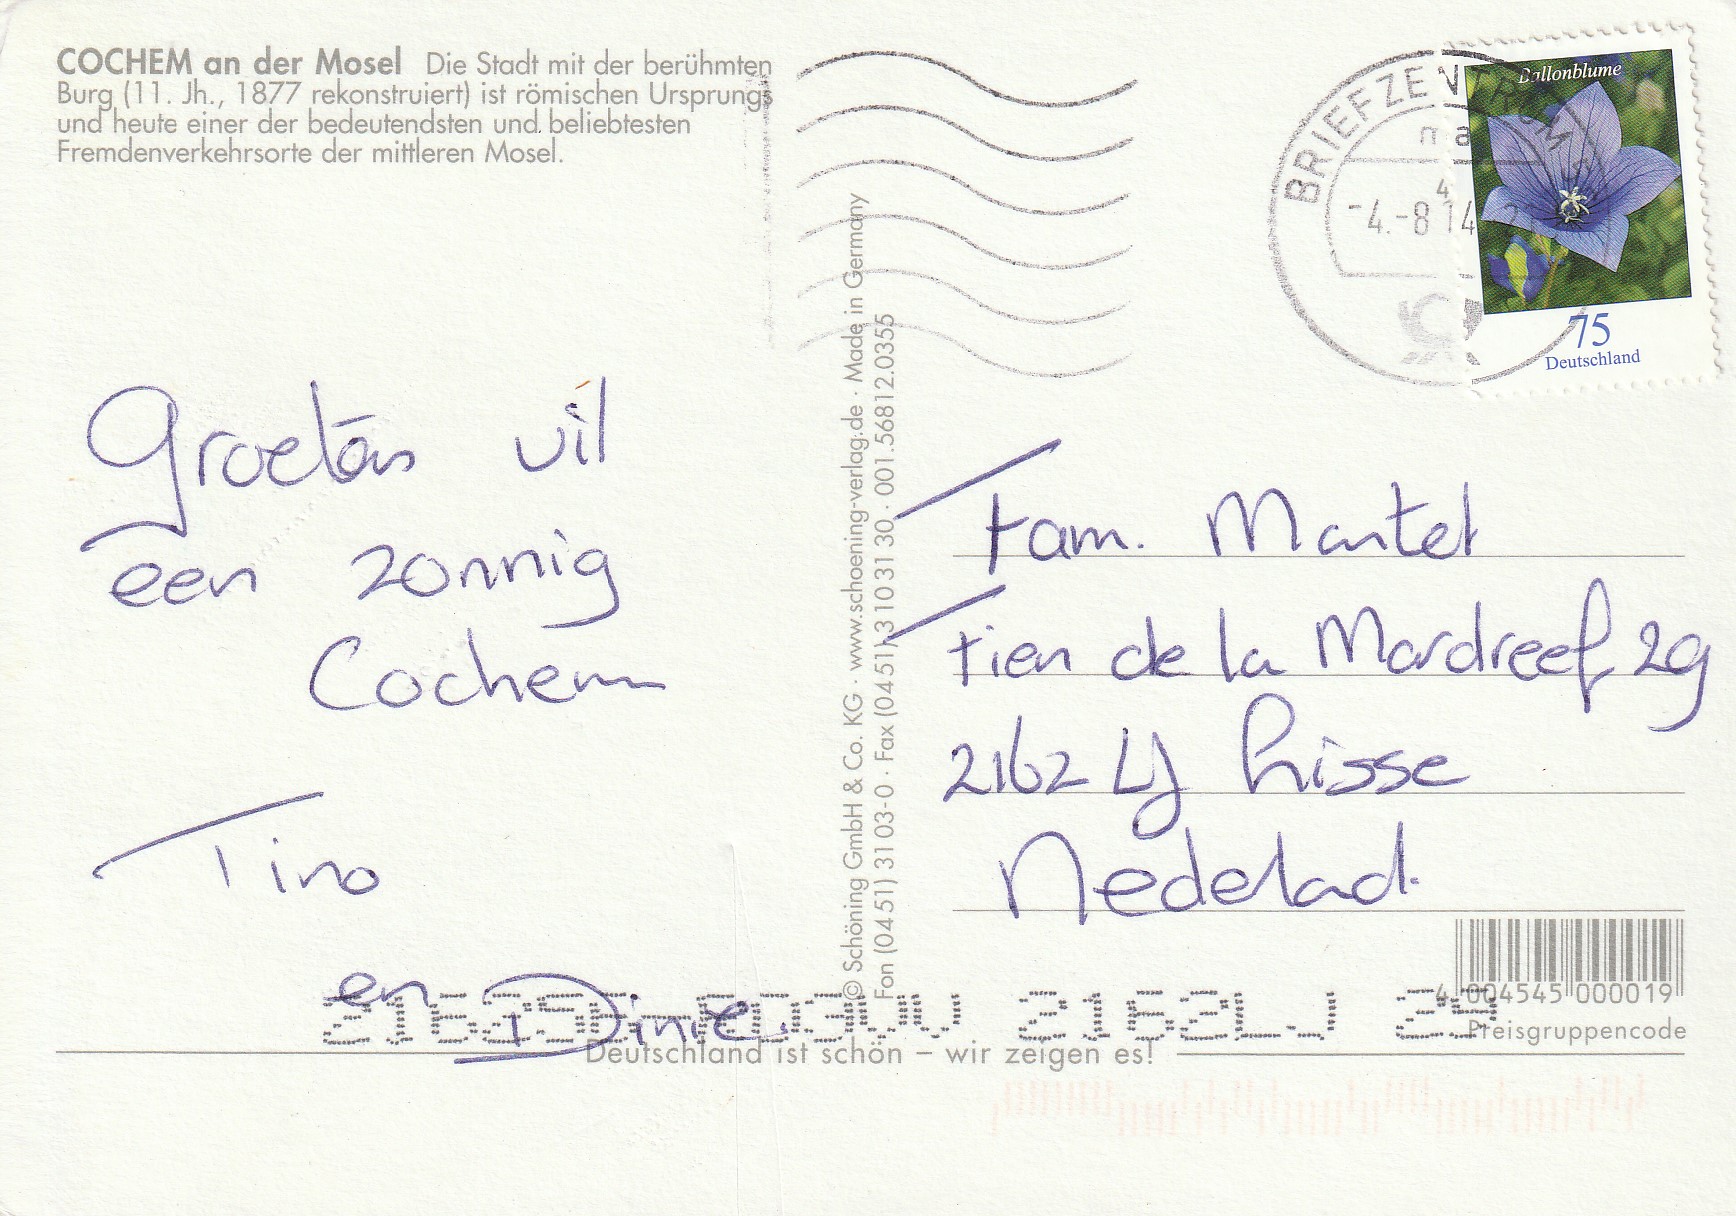 COCHEM an der Mosel Die Stadt mit der berühmten
Burg (11. Jh., 1877 rekonstruiert) ist römischen Ursprungs
und heute einer der bedeutendsten und beliebtesten
Fremdenverkehrsorte der mittleren Mosel.
Groeten uit
een zonnig
Cochem
Tino
en Dinie
© Schöning GmbH & Co. KG · www.schoening-verlag.de · Made in Germany
Fon (04 51) 31 03-0 · Fax (04 51) 3 10 31 30 · 001.56812.0355
BRIEFZENTRUM
-4.-8 14
Ballonblume
75
Deutschland
Fam. Mantel
Fien de la Mardreef 29
2162 LJ Lisse
Nedelad.
4 004545 000019
Preisgruppencode
2162LJ 29
Deutschland ist schön – wir zeigen es!